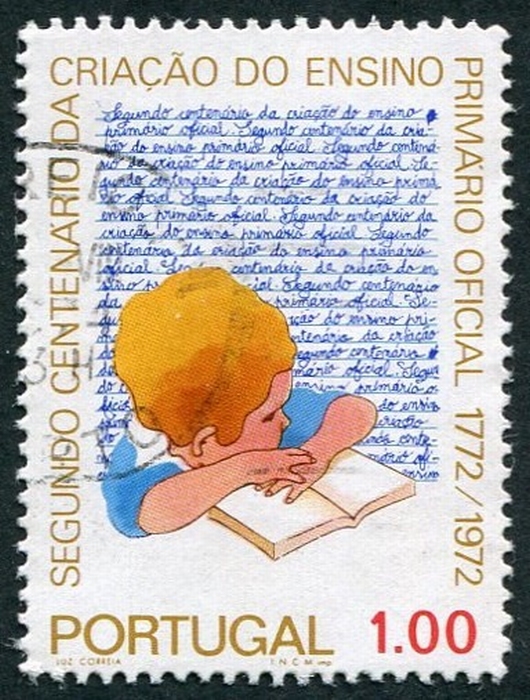 SEGUNDO CENTENÁRIO DA
CRIAÇÃO DO ENSINO
PRIMÁRIO OFICIAL 1772/1972
Segundo centenário da criação do ensino
primário oficial. Segundo centenário da cria-
ção do ensino primário oficial. Segundo centená-
rio da criação do ensino primário oficial. Se-
gundo centenário da criação do ensino primá
rio oficial. Segundo centenário da criação do
ensino primário oficial. Segundo centenário da
criação do ensino primário oficial. Segundo
centenário da criação do ensino primário
oficial. Segundo centenário da criação do en
sino p cial. Segundo centenário
da primário oficial. Se-
gu ação do ensino pri-
má ntenário da criação
do egundo centenário
da mário oficial. Segun
do c ensino primário o-
do ensino
criação
ndo cente-
mário ofi-
ensino
PORTUGAL 1.00
LUZ CORREIA
I.N.C.M. imp.